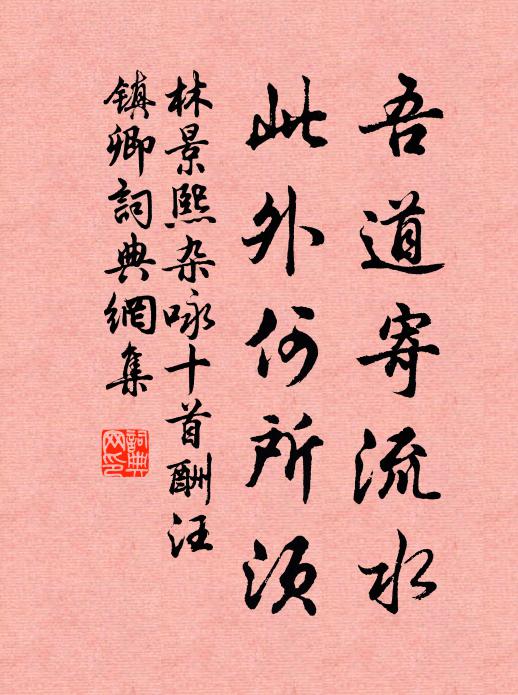 吾道寄流水
此外何所須
林景熙杂咏十首酬汪
鎮卿詞典網集
詞典網印